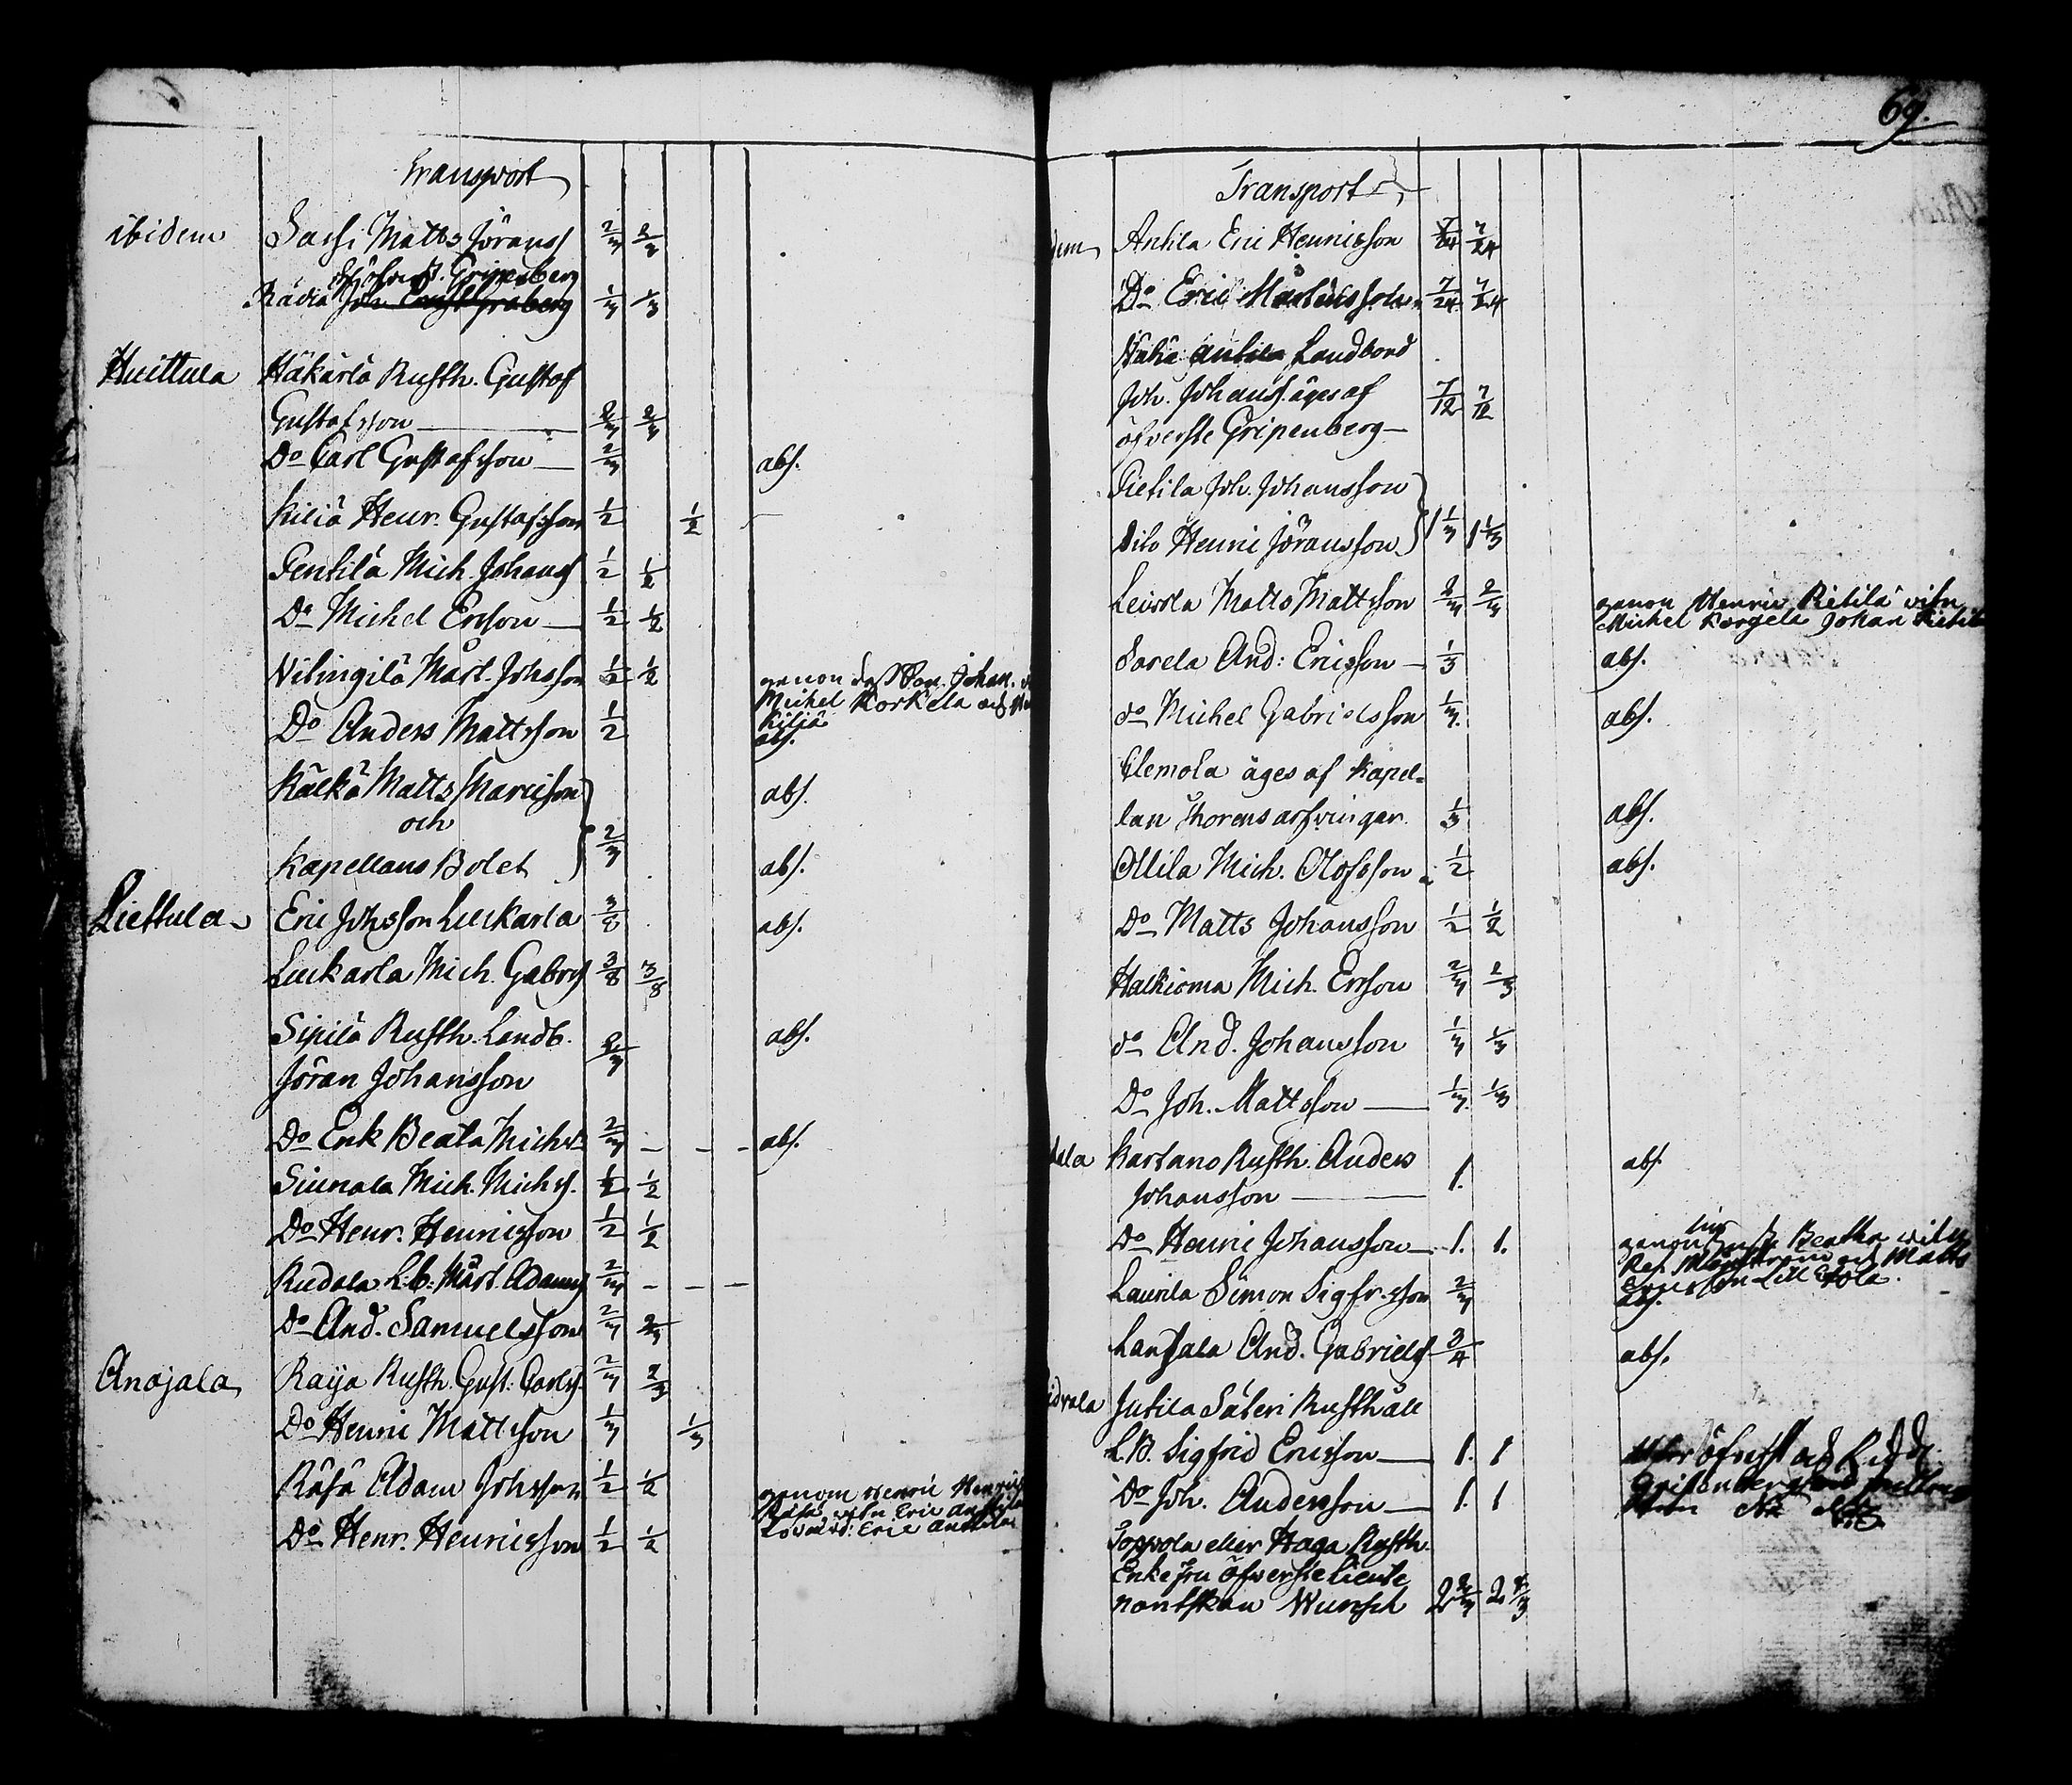 Transport
ibidem Sassi Matts Jöranss 2/3 2/3
Gripenberg
Rädiä Joh. 1/3 1/3
Huittula Häkärlä Rusth. Gustof
Gustafsson — 2/3 2/3
Do Carl Gustafsson — 2/3 abs.
Kiliä Henr. Gustafsson 1/2 1/2
Pentilä Mich. Johanss 1/2 1/2
Do Michel Ersson — 1/2 1/2
Nilingilä Mårt. Johsson 1/2 1/2 genom Johan.
Michel Korkela och
Kiliä
Do Anders Mattsson 1/2 abs.
Kälkä Matts Marcisson abs.
och 2/3
Kapellans Bolet abs.
Liettula Eric Johsson Luckarla 3/8 abs.
Luckarla Mich. Gabrs 3/8 3/8
Sipilä Rusth. Landb. 2/3 abs.
Jöran Johansson
Do Enk Beata Michs 2/3 — — — abs.
Siunala Mich. Michs. 1/2 1/2
Do Henr. Henricsson 1/2 1/2
Rudala L.b: Mårt. Adamss 2/3 — — —
Do And. Samuelsson 2/3 2/3
Anajala Raija Rusth. Gust: Carls. 2/3 2/3
Do Henric Mattsson 1/3 1/3
Räsä Adam Johsson 1/2 1/2 genom Henric Henrics
Räsä, witn Eric Anttila
Eric Anttila
Do Henr. Henricsson 1/2 1/2
69.
Transport
dem Antila Eric Henricsson 7/24 7/24
Do Eric Mårtensson 7/24 7/24
Wähä Antila Landbond
Joh. Johanss. äges af 7/12 7/12
öfverste Gripenberg —
Pietila Joh. Johansson
Dito Henric Jöransson 1 1/3 1 1/3
Leirola Matts Mattsson 2/3 2/3 genom Henric Pietilä witn
Michel Korgela Johan Pietil
Sorela And: Ericsson — 1/3 abs.
do Michel Gabrielsson 1/3. abs.
Clemola äges af Kapel-
lan Thorens arfvingar 1/3 abs.
Ollila Mich. Olofsson 1/2 abs.
Do Matts Johansson 1/2 1/2
Halkioma Mich. Ersson 2/3 2/3
do And. Johansson 1/3 1/3
Do Joh. Mattsson — 1/3. 1/3
Kartano Rusth. Anders
Johansson — 1. abs.
Do Henric Johansson — 1. 1. genom hustr Beatha witn
och Matts
Ericsson Lill Eola.
Laurila Simon Sigfr.sson 2/3 abs.
Lansala And. Gabriels. 3/4 abs.
Jutila Säteri Rusthåll
L.B. Sigfrid Ericsson — 1. 1 öfverst och Ridd.
Do Joh. Andersson — 1. 1 Gripenberg
Toppola eller Haga Rusth.
Enkefru Öfwersteliente
nantskan Wunsch 2 2/3 2 2/3